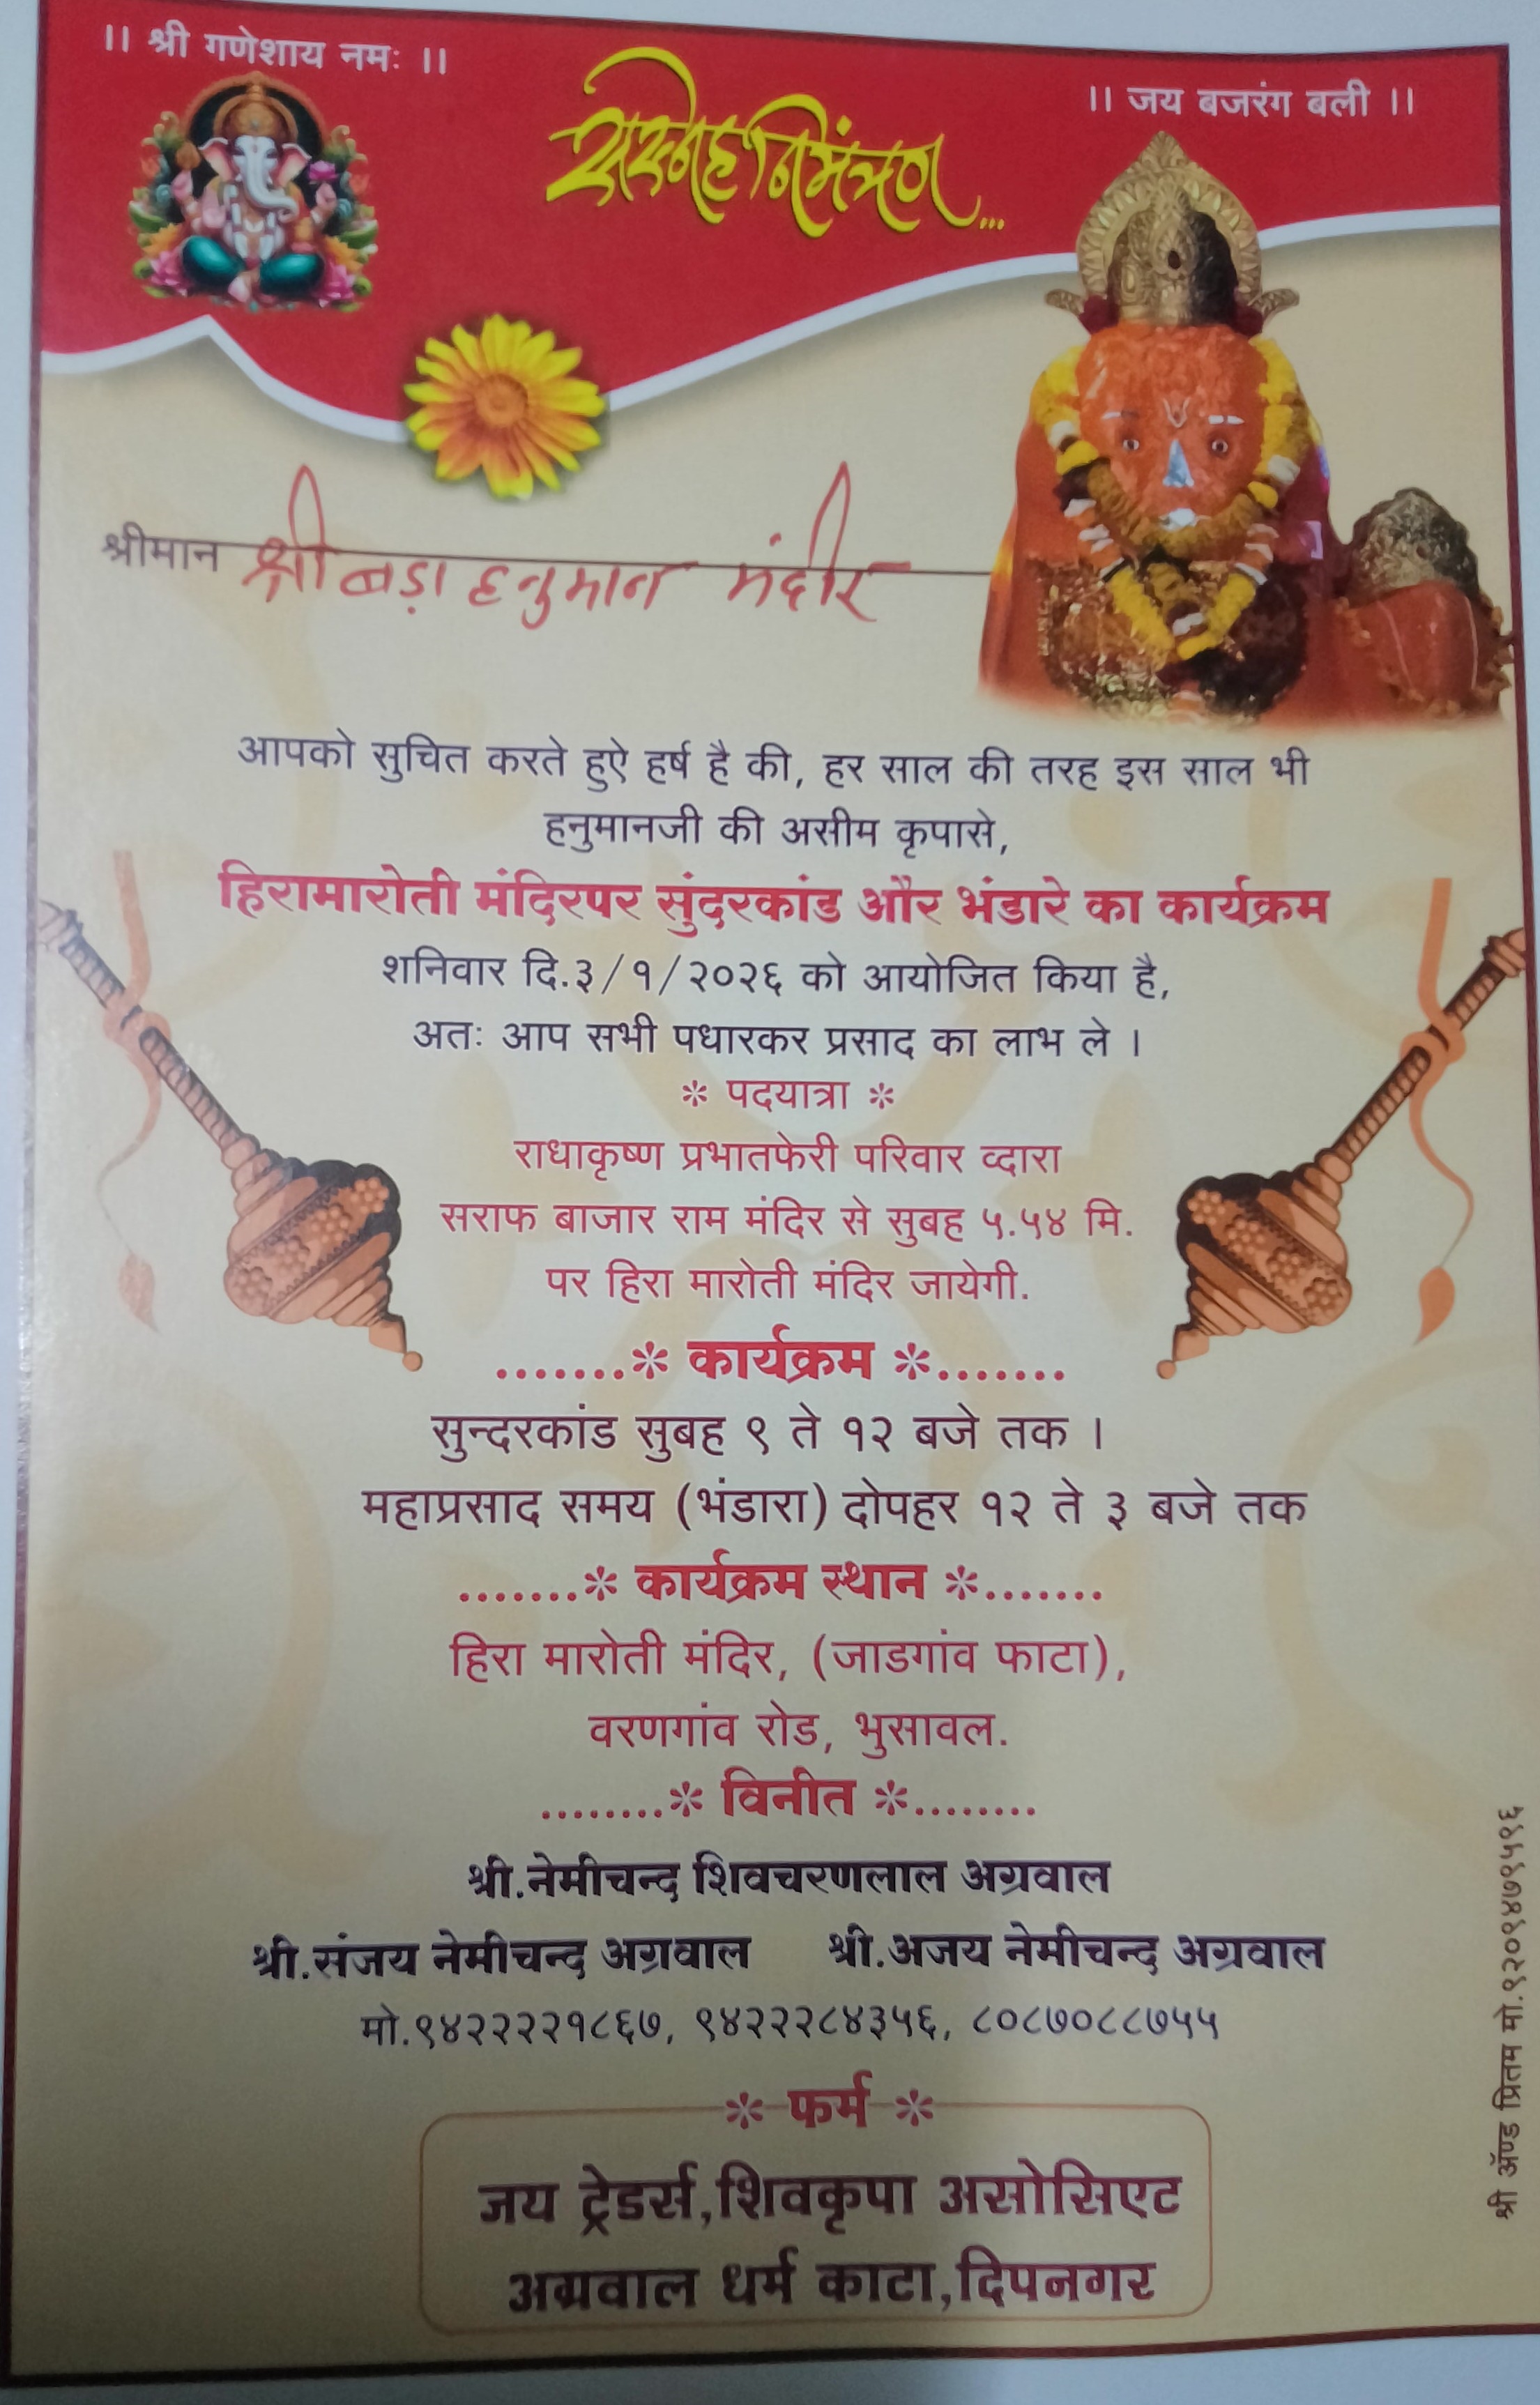 ।। श्री गणेशाय नमः ।।
।। जय बजरंग बली ।।
सस्नेह निमंत्रण...
श्रीमान श्री बड़ा हनुमान मंदीर
आपको सुचित करते हुऐ हर्ष है की, हर साल की तरह इस साल भी
हनुमानजी की असीम कृपासे,
हिरामारोती मंदिरपर सुंदरकांड और भंडारे का कार्यक्रम
शनिवार दि.३/१/२०२६ को आयोजित किया है,
अतः आप सभी पधारकर प्रसाद का लाभ ले ।
* पदयात्रा *
राधाकृष्ण प्रभातफेरी परिवार व्दारा
सराफ बाजार राम मंदिर से सुबह ५.५४ मि.
पर हिरा मारोती मंदिर जायेगी.
.......* कार्यक्रम *.......
सुन्दरकांड सुबह ९ ते १२ बजे तक ।
महाप्रसाद समय (भंडारा) दोपहर १२ ते ३ बजे तक
.......* कार्यक्रम स्थान *.......
हिरा मारोती मंदिर, (जाडगांव फाटा),
वरणगांव रोड, भुसावल.
........* विनीत *........
श्री.नेमीचन्द शिवचरणलाल अग्रवाल
श्री.संजय नेमीचन्द अग्रवाल श्री.अजय नेमीचन्द अग्रवाल
मो.९४२२२२१८६७, ९४२२२८४३५६, ८०८७०८८७५५
* फर्म *
जय ट्रेडर्स,शिवकृपा असोसिएट
अग्रवाल धर्म काटा,दिपनगर
श्री ॲण्ड प्रितम मो.९२०९४७९५९६